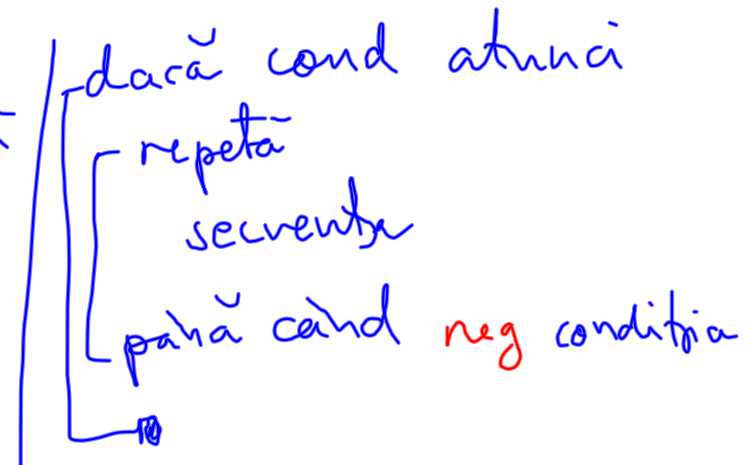 dacă cond atunci
repetă
secvența
până când neg condiția